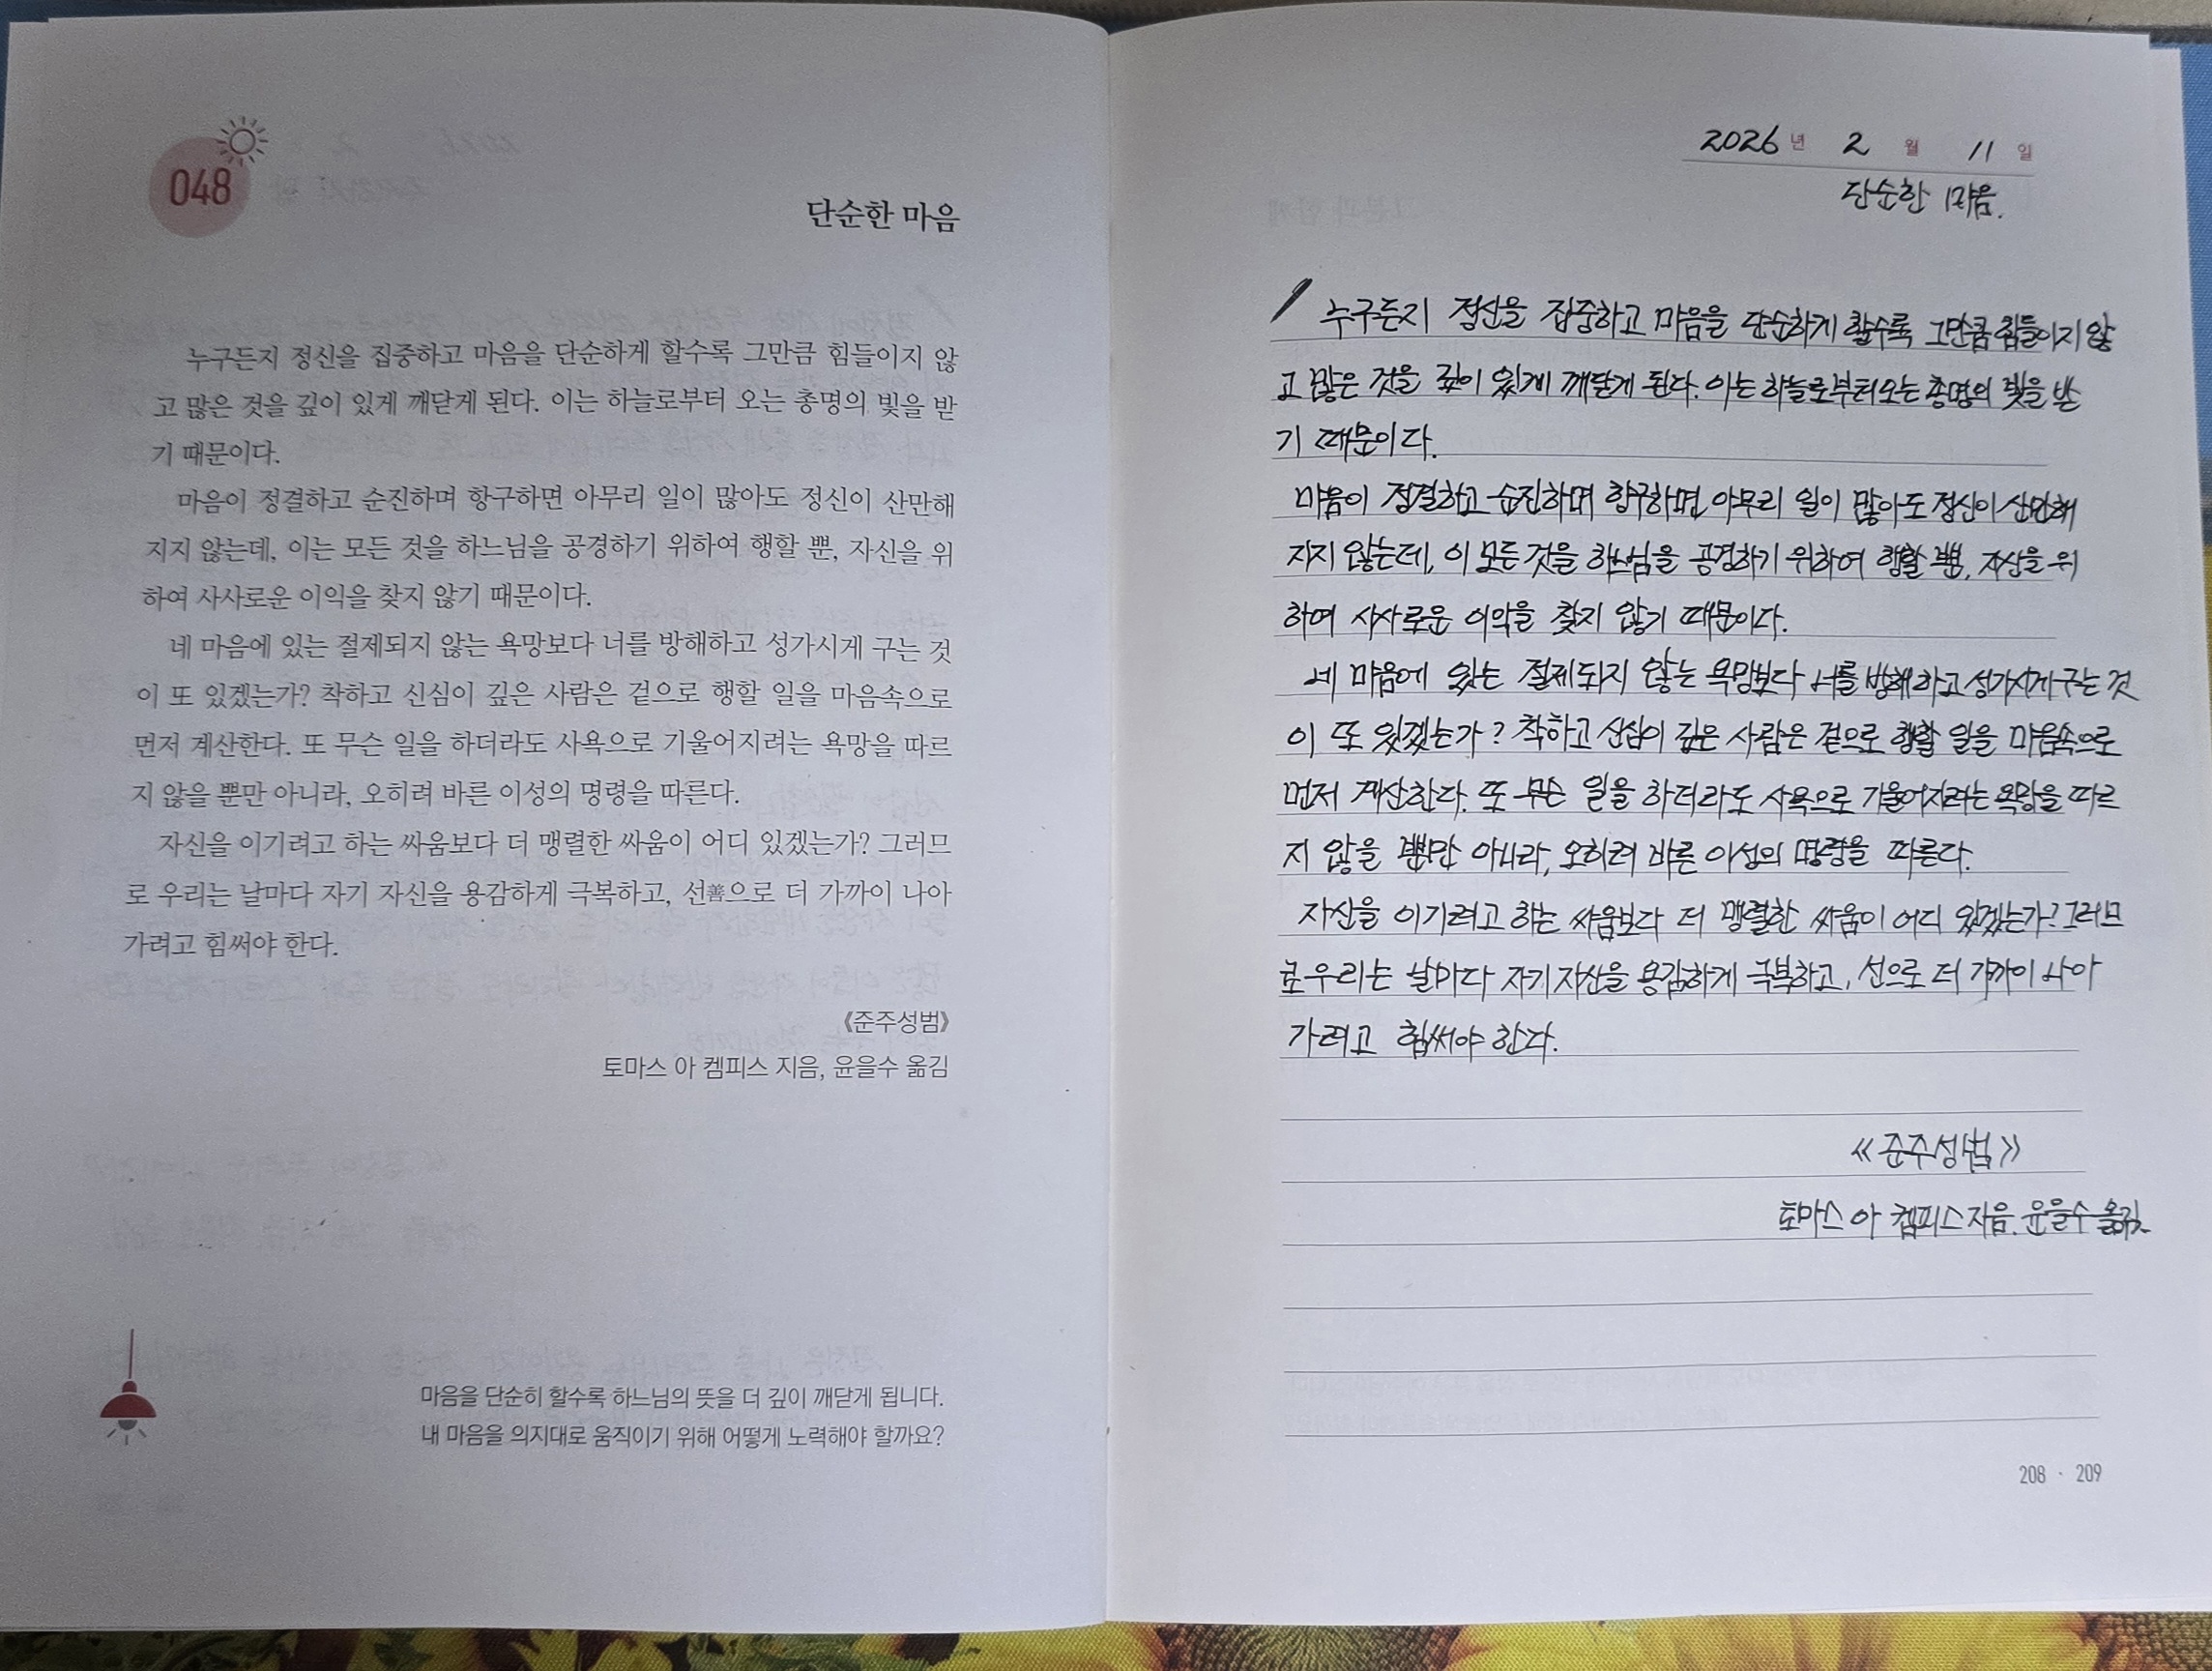 048
단순한 마음
누구든지 정신을 집중하고 마음을 단순하게 할수록 그만큼 힘들이지 않
고 많은 것을 깊이 있게 깨닫게 된다. 이는 하늘로부터 오는 총명의 빛을 받
기 때문이다.
마음이 정결하고 순진하며 항구하면 아무리 일이 많아도 정신이 산만해
지지 않는데, 이는 모든 것을 하느님을 공경하기 위하여 행할 뿐, 자신을 위
하여 사사로운 이익을 찾지 않기 때문이다.
네 마음에 있는 절제되지 않는 욕망보다 너를 방해하고 성가시게 구는 것
이 또 있겠는가? 착하고 신심이 깊은 사람은 겉으로 행할 일을 마음속으로
먼저 계산한다. 또 무슨 일을 하더라도 사욕으로 기울어지려는 욕망을 따르
지 않을 뿐만 아니라, 오히려 바른 이성의 명령을 따른다.
자신을 이기려고 하는 싸움보다 더 맹렬한 싸움이 어디 있겠는가? 그러므
로 우리는 날마다 자기 자신을 용감하게 극복하고, 선善으로 더 가까이 나아
가려고 힘써야 한다.
《준주성범》
토마스 아 켐피스 지음, 윤을수 옮김
마음을 단순히 할수록 하느님의 뜻을 더 깊이 깨닫게 됩니다.
내 마음을 의지대로 움직이기 위해 어떻게 노력해야 할까요?
2026년 2월 11일
단순한 마음.
누구든지 정신을 집중하고 마음을 단순하게 할수록 그만큼 힘들이지 않
고 많은 것을 깊이 있게 깨닫게 된다. 이는 하늘로부터 오는 총명의 빛을 받
기 때문이다.
마음이 정결하고 순진하며 항구하면 아무리 일이 많아도 정신이 산만해
지지 않는데, 이 모든 것을 하느님을 공경하기 위하여 행할 뿐, 자신을 위
하여 사사로운 이익을 찾지 않기 때문이다.
네 마음에 있는 절제되지 않는 욕망보다 너를 방해하고 성가시게 구는 것
이 또 있겠는가? 착하고 신심이 깊은 사람은 겉으로 행할 일을 마음속으로
먼저 계산한다. 또 무슨 일을 하더라도 사욕으로 기울어지려는 욕망을 따르
지 않을 뿐만 아니라, 오히려 바른 이성의 명령을 따른다.
자신을 이기려고 하는 싸움보다 더 맹렬한 싸움이 어디 있겠는가? 그러므
로 우리는 날마다 자기 자신을 용감하게 극복하고, 선으로 더 가까이 나아
가려고 힘써야 한다.
《준주성범》
토마스 아 켐피스 지음. 윤을수 옮김.
208 · 209